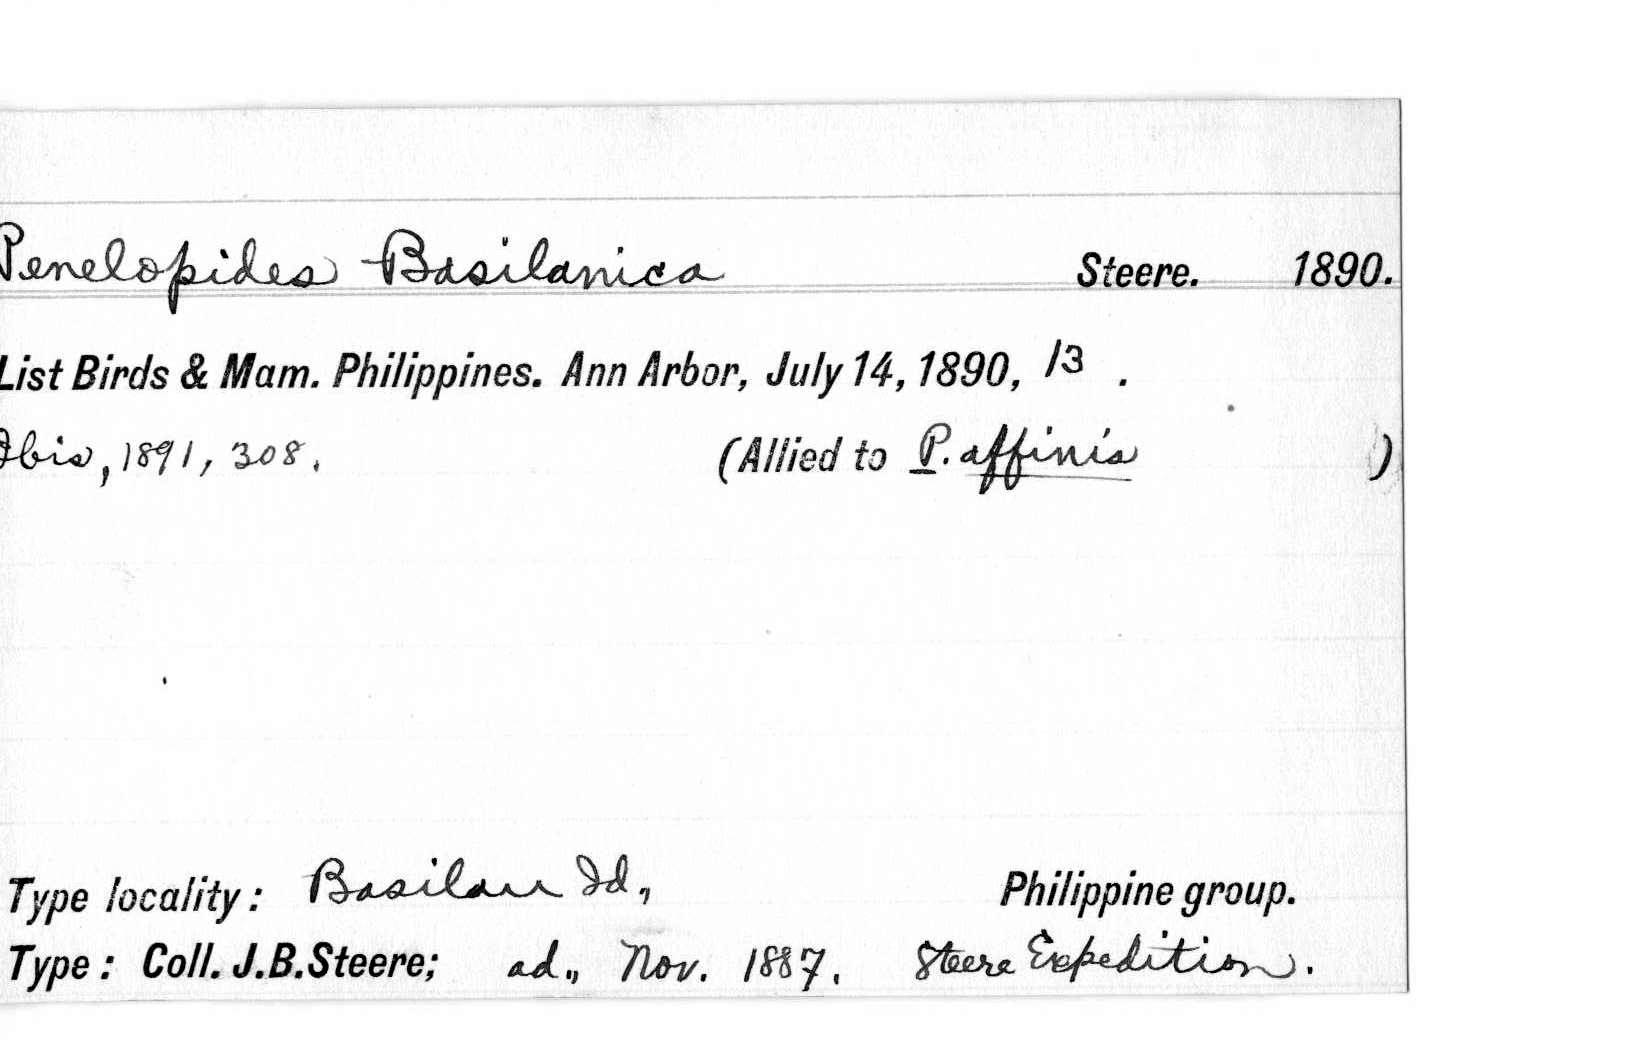 Penelopides Basilanica Steere. 1890.
List Birds & Mam. Philippines. Ann Arbor, July 14, 1890, 13 .
Ibis, 1891, 308. (Allied to P. affinis )
Type locality: Basilan Id., Philippine group.
Type: Coll. J.B.Steere; ad., Nov. 1887. Steere Expedition.